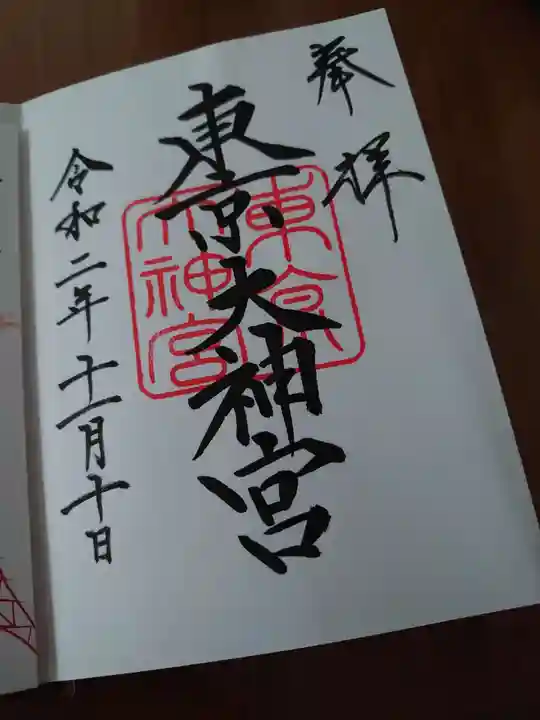 奉拝
東京大神宮
東京
大神宮
令和二年十一月十日